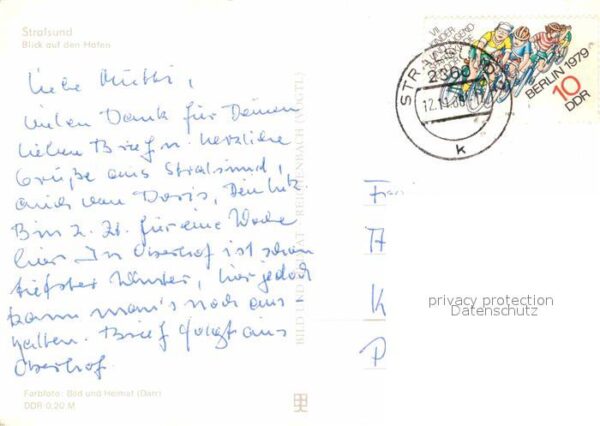 Stralsund
Blick auf den Hafen
Liebe Mutti,
vielen Dank für Deinen
lieben Brief u. herzliche
Grüße aus Stralsund,
auch von Doris, Dein Lutz
Bin z. Zt. für eine Woche
hier. In Oberhof ist schon
tiefster Winter, hier jedoch
kann man's noch aus-
halten. Brief folgt aus
Oberhof.
Farbfoto: Bild und Heimat (Darr)
DDR 0,20 M
BILD UND HEIMAT REICHENBACH (VOGTL)
VII
KINDER
JUGEND
BERLIN 1979
10
DDR
STRALSUND
2300
12.11.80
k
Frau
H
K
P
privacy protection
Datenschutz